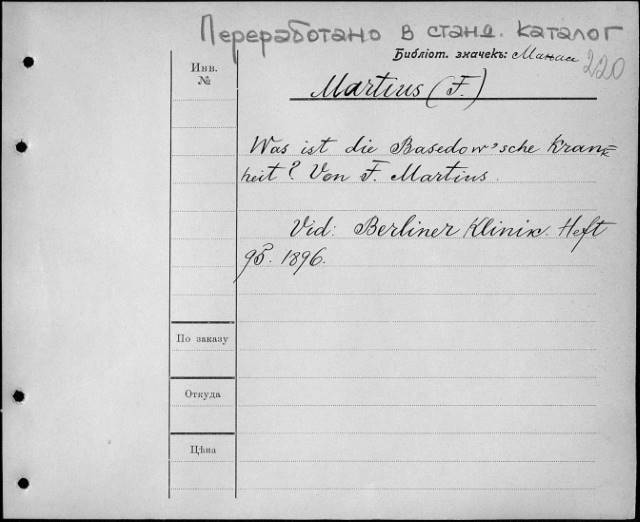 Переработано в станд. каталог
Библіот. значекъ:
220
Инв.
№
Martius (F.)
Was ist die Basedow'sche Krank-
heit? Von F. Martius.
Vid: Berliner Klinik. Heft
95. 1896.
По заказу
Откуда
Цѣна